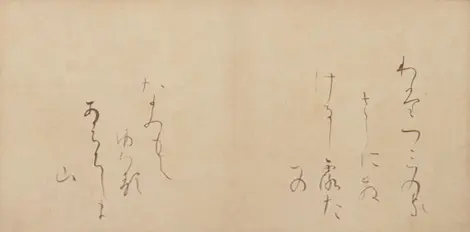 わたつみのか
さしにさ
せるしろた
への
なみもて
ゆへる
あはちしま
山